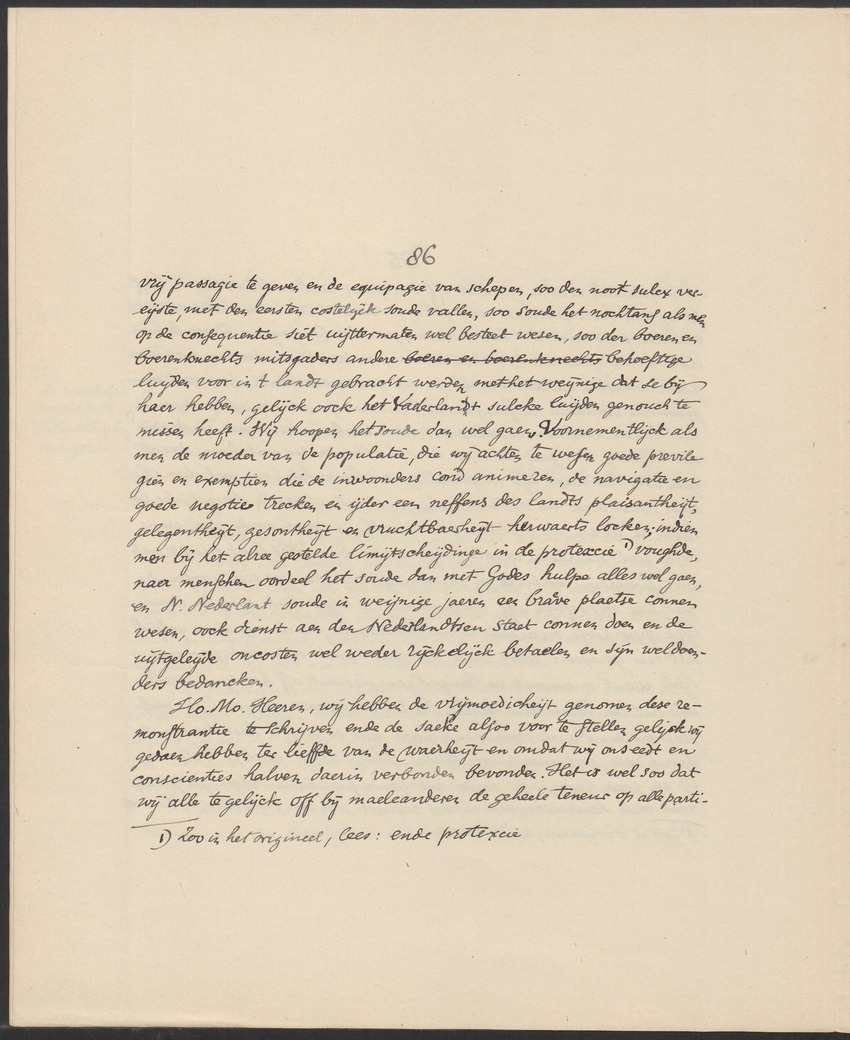 86
vrij passagie te geven en de equipagie van schepen, soo den noot sulcx ver-
eijste, met den eersten costelijck soude vallen, soo soude het nochtans als men
op de consequentie siet uijttermaten wel besteet wesen, soo der boeren en
boerenknechts mitsgaders andere boeren en boerenknechts behoeftige
luijden voor in 't landt gebracht werden met het weijnige dat se bij
haer hebben, gelijck oock het Vaderlandt sulcke luijden genouch te
missen heeft. Wij hoopen het soude dan wel gaen, Voornementlijck als
men de moeder van de populatie, die wij achten te wesen goede previle-
giën en exemptien die de inwoonders cond animeren, de navigatie en
goede negotie trecken en ijder een neffens des landts plaisantheijt,
gelegentheijt, gesontheijt en vruchtbaerheijt herwaerts locken, indien
men bij het alree gestelde limijtscheijdinge in de protexcie 1) voughde,
naer menschen oordeel het soude dan met Godes hulpe alles wel gaen,
en N. Nederlant soude in weijnige jaeren een brave plaetse connen
wesen, oock dienst aen den Nederlandtsen Staet connen doen en de
uijtgeleijde oncosten wel weder rijckelijck betaelen en sijn weldoen-
ders bedancken.
Ho. Mo. Heeren, wij hebben de vrijmoedicheijt genomen dese re-
monstrantie te schrijven ende de saecke alsoo voor te stellen gelijck wij
gedaen hebben ter lieffde van de waerheijt en omdat wij ons eedt en
conscienties halven daerin verbonden bevonden. Het is wel soo dat
wij alle te gelijck off bij maelcanderen de geheele teneur op alle parti-
1) Zoo in het origineel, lees: ende protexcie